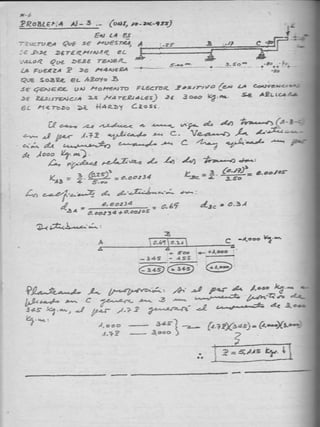 PROBLEMA N-3 - (UNI, 10-DIC-955)
EN LA ES
TRUCTURA QUE SE MUESTRA,
SE DEBE DETERMINAR EL
VALOR QUE DEBE TENER
LA FUERZA P DE MANERA
QUE SOBRE EL APOYO B
SE GENERE UN MOMENTO FLECTOR POSITIVO (EN LA
DE RESISTENCIA DE MATERIALES) DE 3000 Kg.m. SE APLICARA
EL METODO DE HARDY CROSS.
A .25 B .17 C
5.00 m 3.50 m
El caso se reduce a una viga de dos tramos (A-B-C)
con el par 1.7P aplicado en C. Veamos la distribu
ción de momentos cuando en C hay aplicado un par
de 1000 Kg.m.
Las rigideces relativas de los dos tramos son:
= 0.00234
= 0.00105
Los coeficientes de distribución son:
= 0.69 = 0.31
0.00234
0.00234+0.00105
Distribución:
B
A 0.69 0.31 C -1,000 Kg.m
+500 +1,000
-345 -155
-345 +345 +1,000
Planteando la proporción: Si el par de 1,000 Kg.m a
plicado en C genera en B un momento positivo de
345 Kg.m., el par 1.7P generará el momento de 3,000
Kg.m:
1,000 345
1.7P 3,000
(1.7P)(345) = (1,000)(3,000)
∴ P = 5,115 Kg. ↓